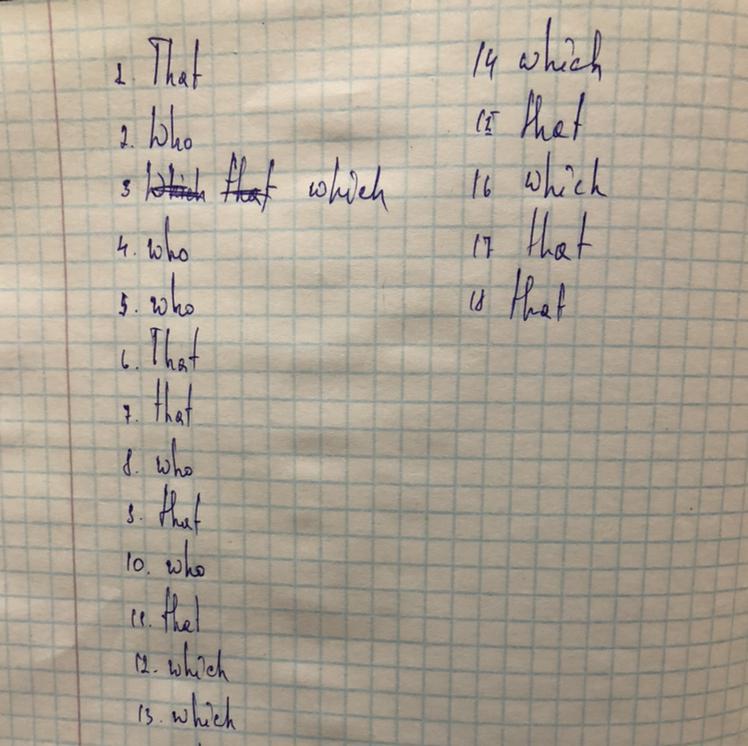 1. That
2. Who
3 which that which
4. who
5. who
6. That
7. that
8. who
9. that
10. who
11. that
12. which
13. which
14 which
15 that
16 which
17 that
18 that